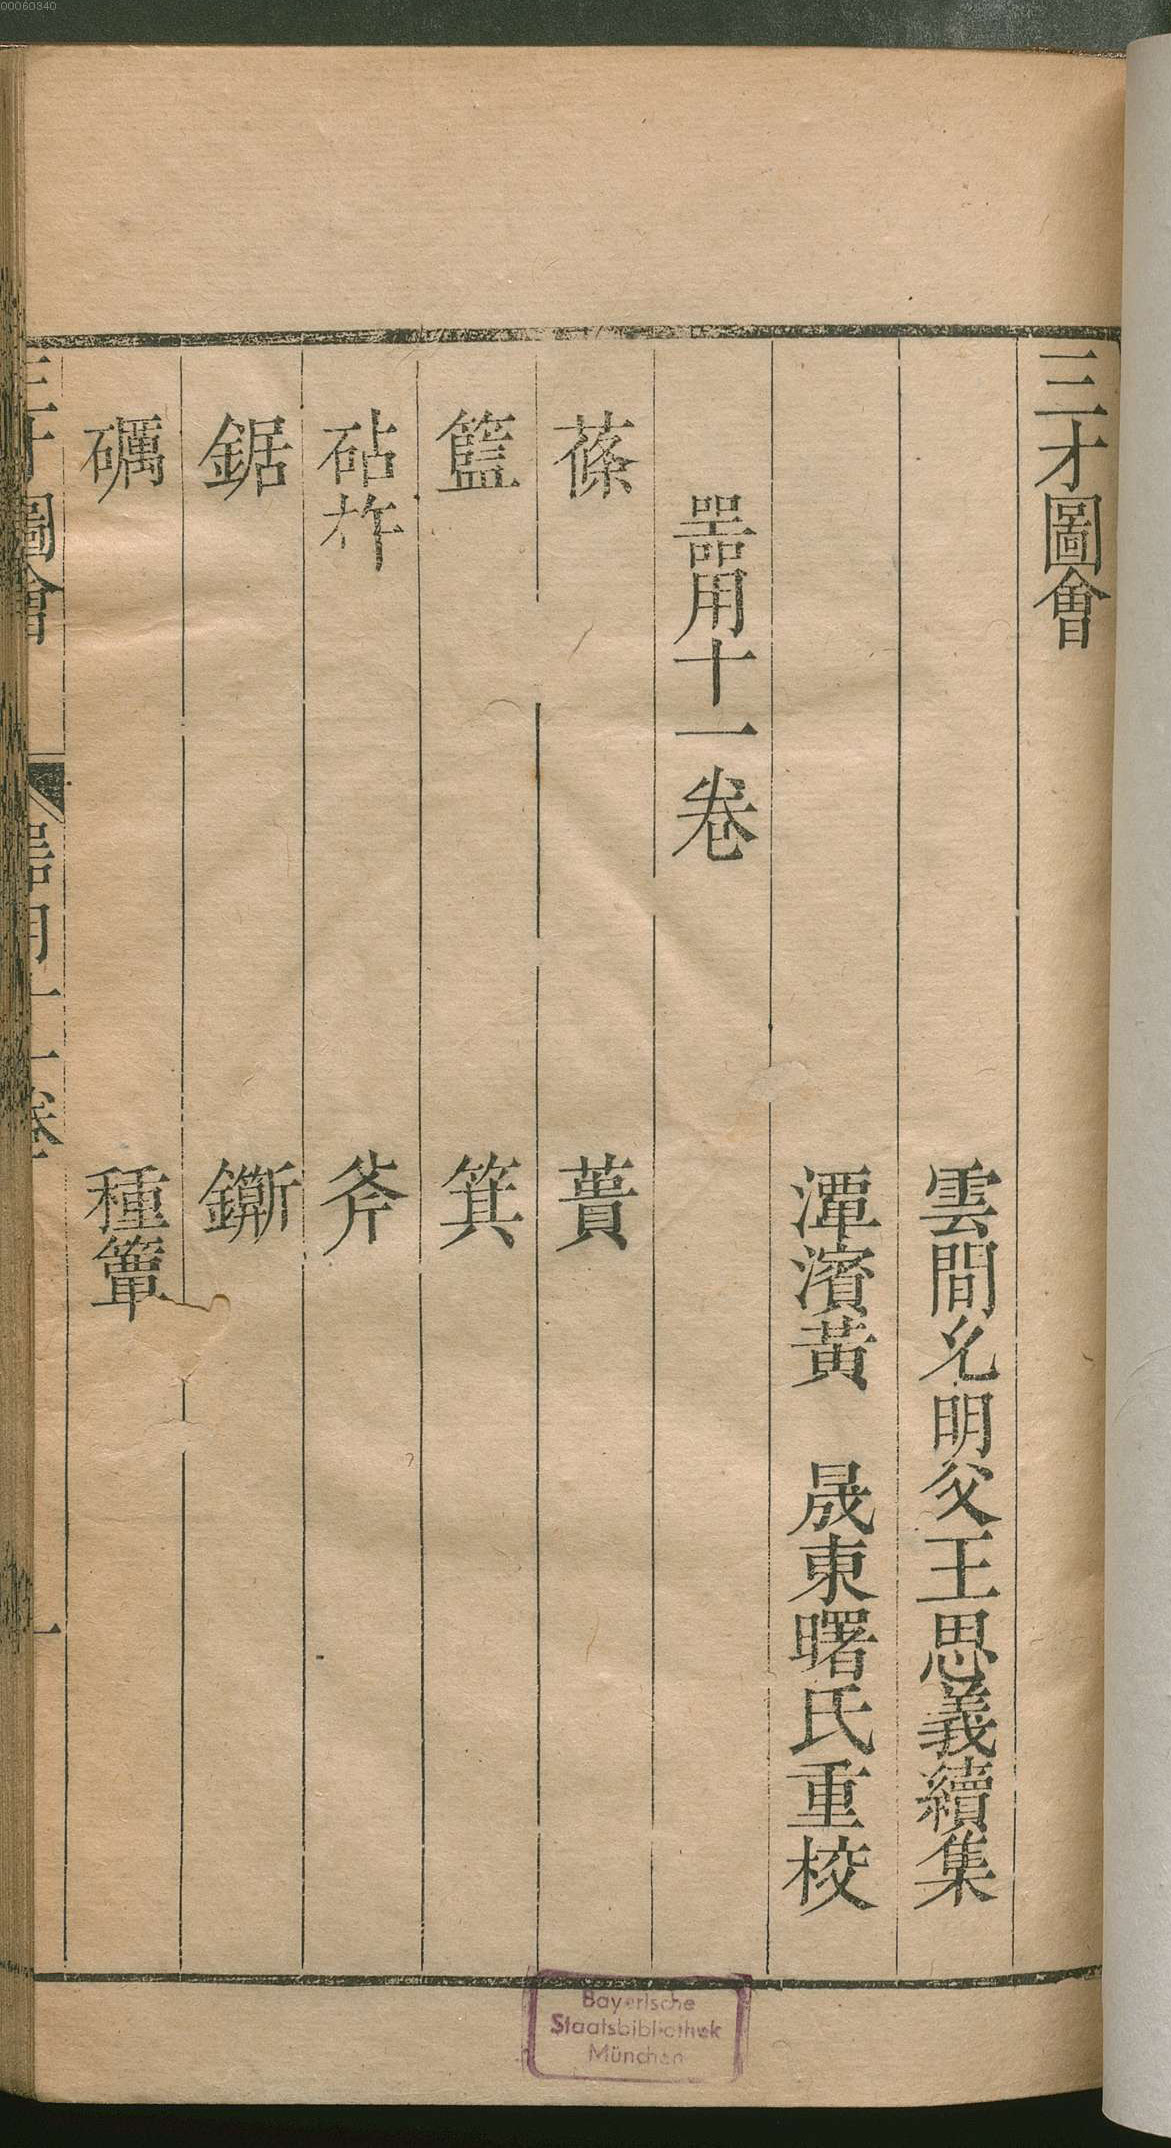 三才圖會
雲間允明父王思義續集
潭濱黃 晟東曙氏重校
器用十一卷
蓧 蕢
籃 箕
砧杵 斧
鋸 鐁
礪 種簞
三才圖會 器用十一卷 一
Bayerische
Staatsbibliothek
München
00060340